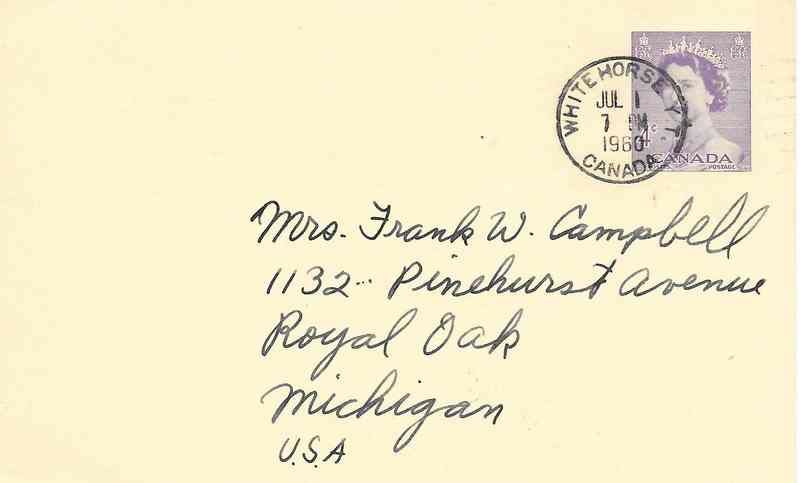 WHITEHORSE Y.T.
JUL 1
7 PM
1960
CANADA
4¢
CANADA
POSTAGE
Mrs. Frank W. Campbell
1132 Pinehurst Avenue
Royal Oak
Michigan
U.S.A